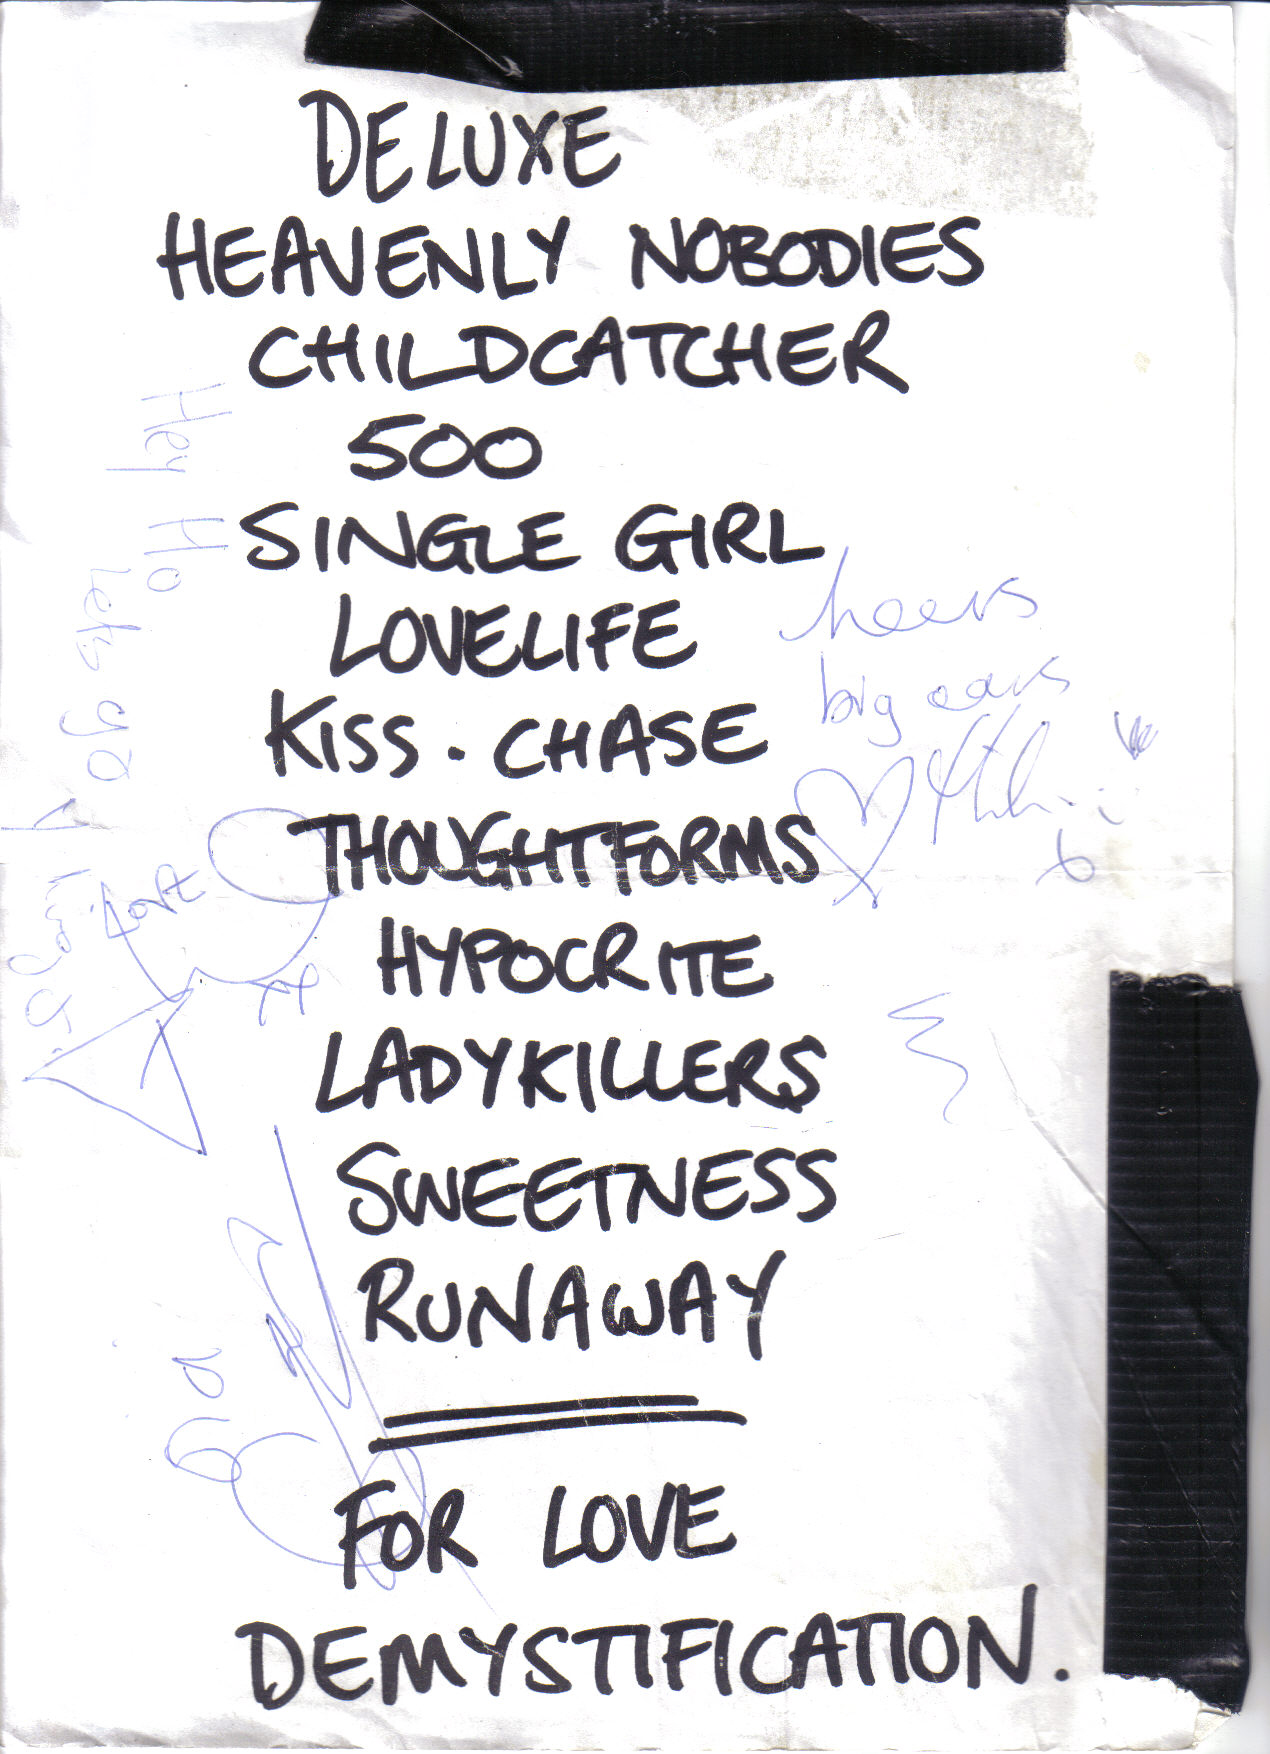 DELUXE
HEAVENLY NOBODIES
CHILDCATCHER
500
SINGLE GIRL
LOVELIFE
KISS. CHASE
THOUGHTFORMS
HYPOCRITE
LADYKILLERS
SWEETNESS
RUNAWAY
FOR LOVE
DEMYSTIFICATION.
Hey Ho
Let's go
love
xx
cheers
big ears